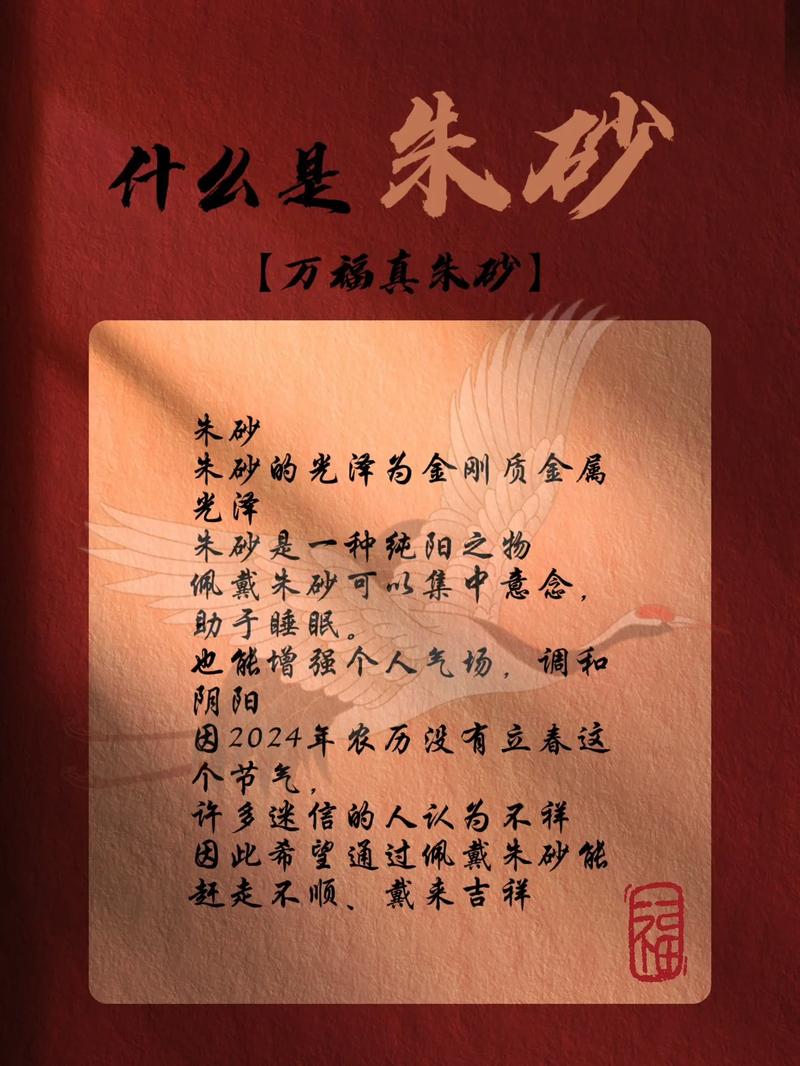 什么是朱砂
【万福真朱砂】
朱砂
朱砂的光泽为金刚质金属
光泽
朱砂是一种纯阳之物
佩戴朱砂可以集中意念，
助于睡眠。
也能增强个人气场，调和
阴阳
因2024年农历没有立春这
个节气，
许多迷信的人认为不祥
因此希望通过佩戴朱砂能
赶走不顺、戴来吉祥